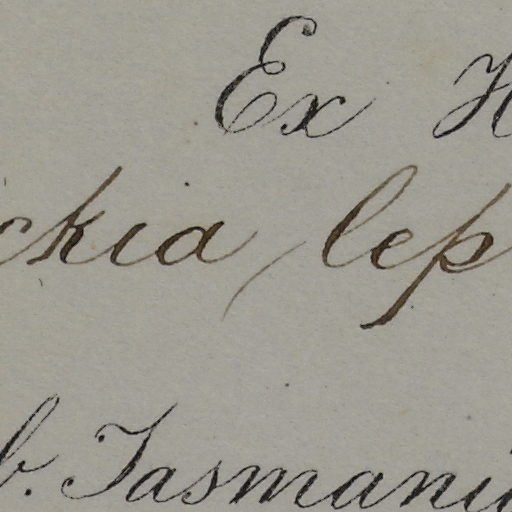 Ex H
ckia lep
b. Tasmani